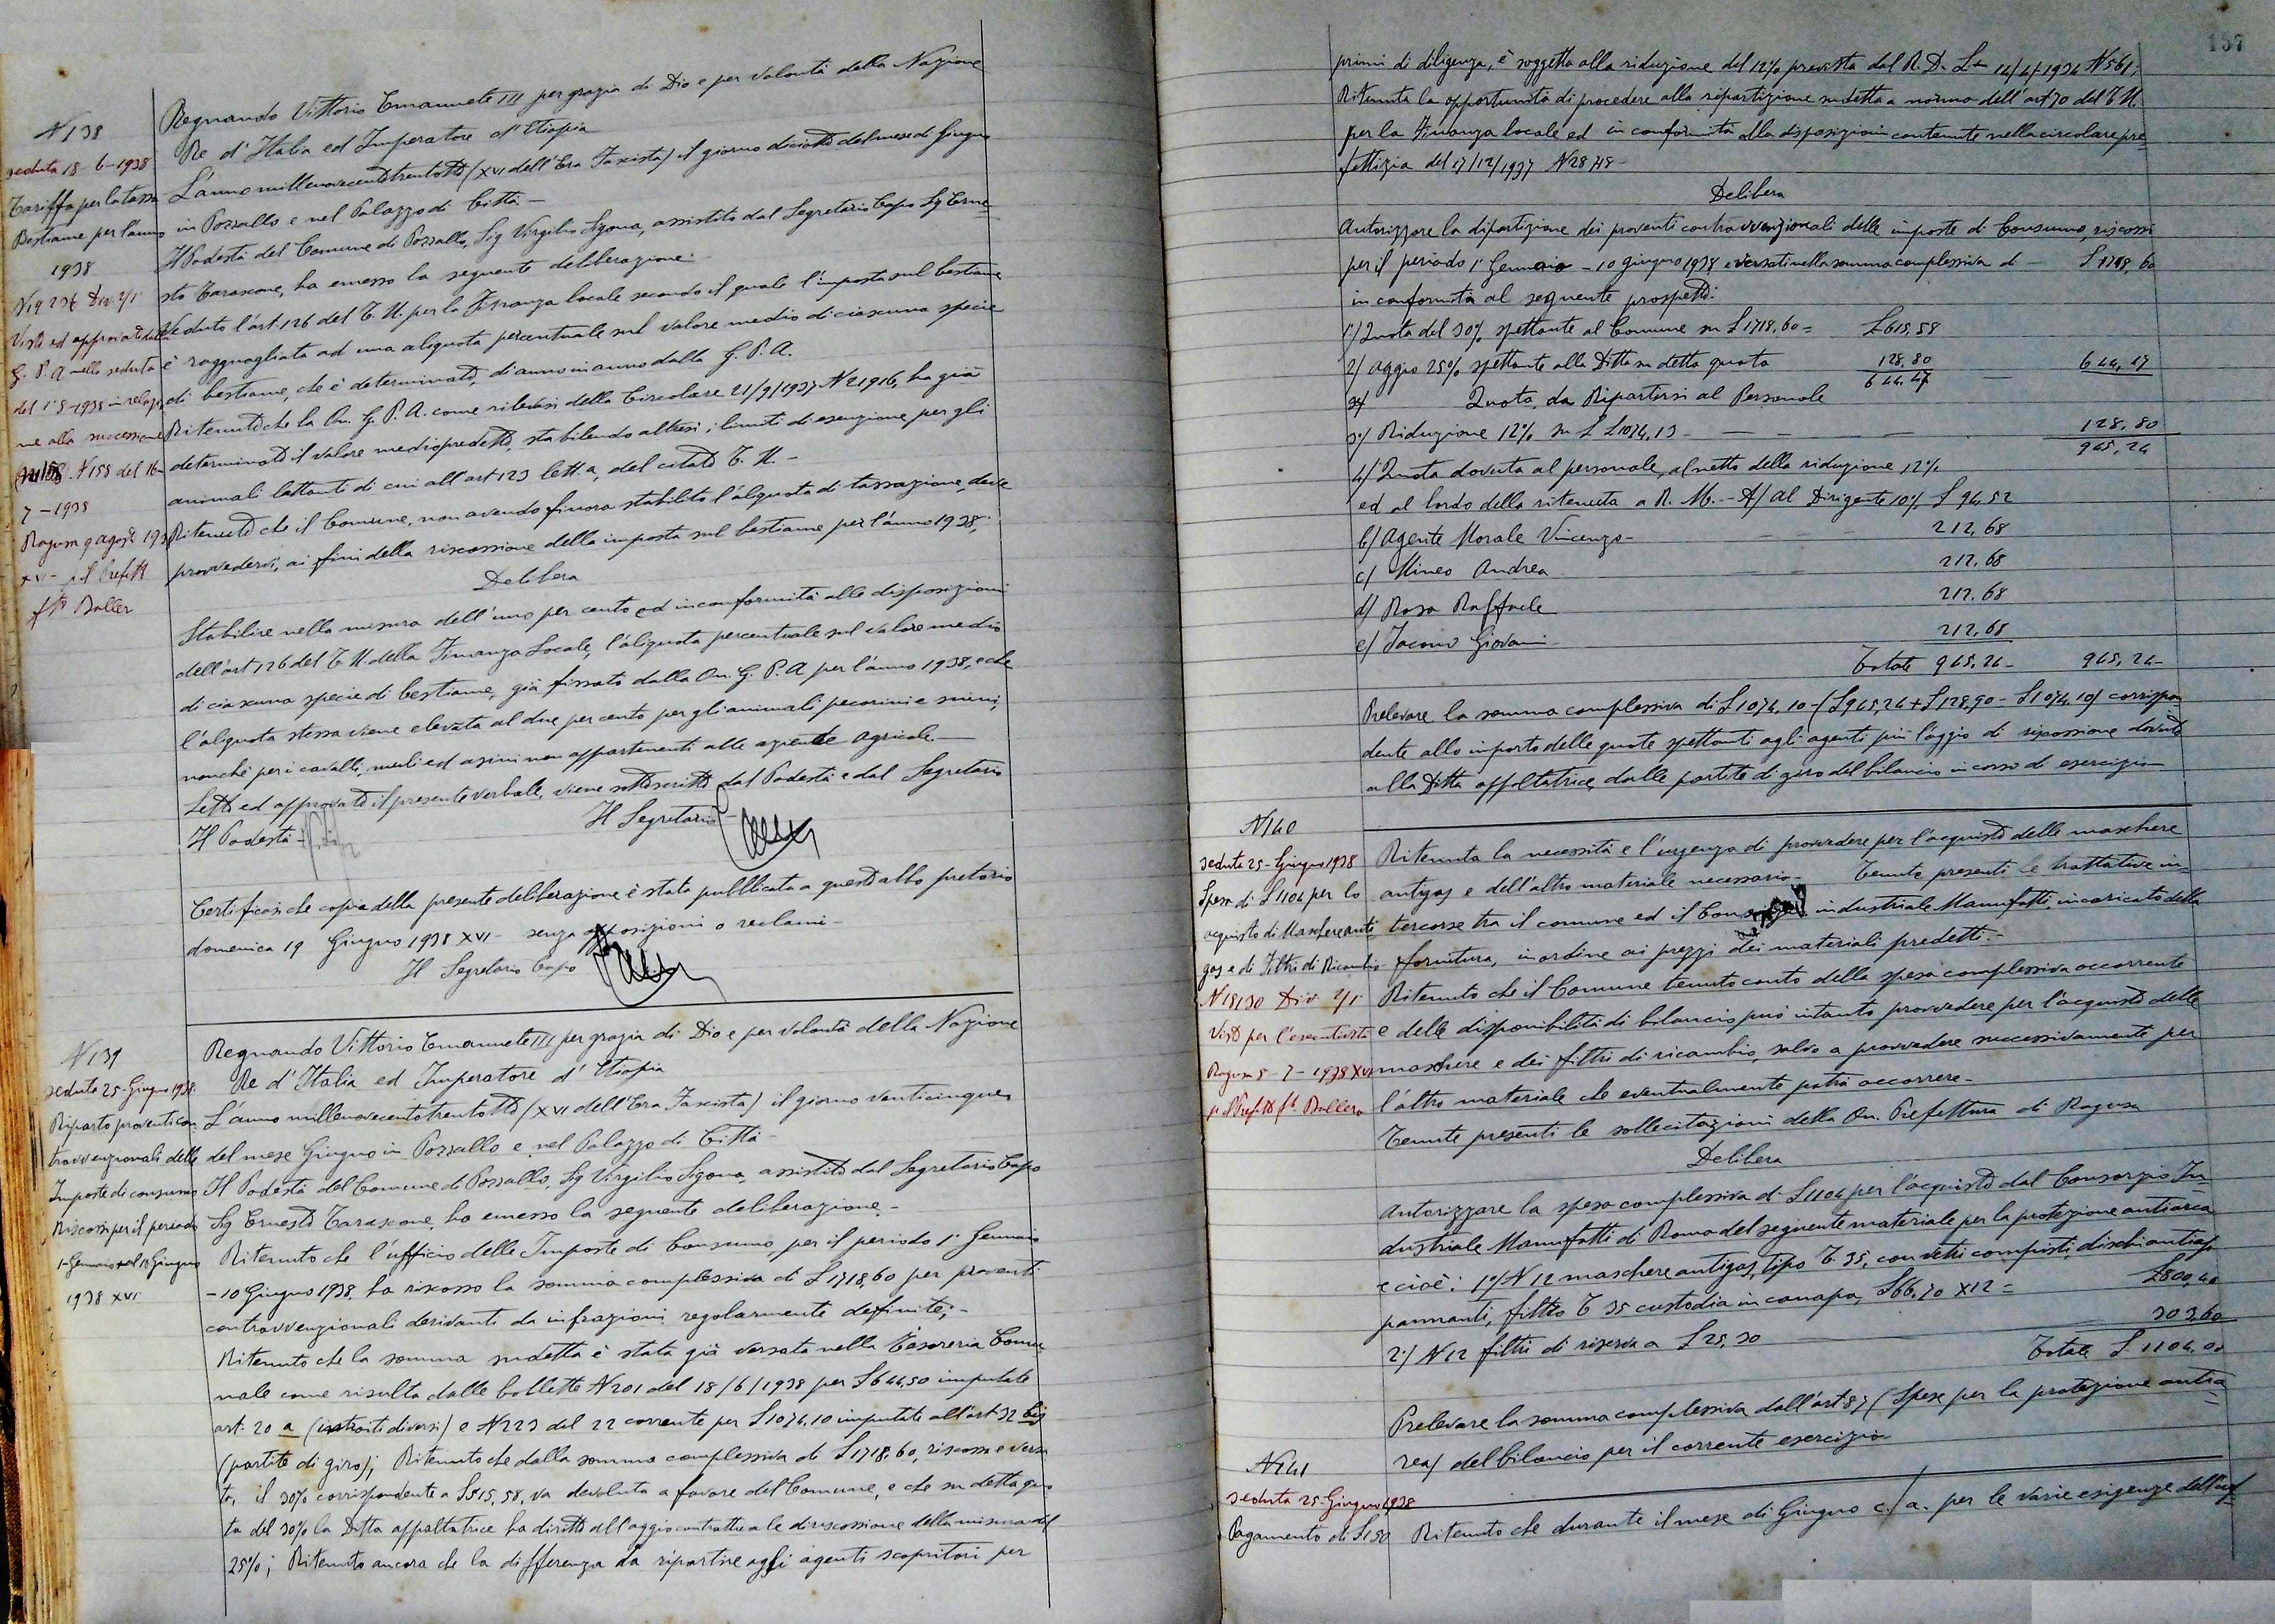 N 138
seduta 18-6-1938
Tariffa per la tassa
Bestiame per l'anno
1938
N 19236 Div. 2/1
Visto ed approvato dalla
G. P. A nella seduta
del 1-8-1938 in relazio
ne alla successione
N 158 del 16-
7-1938
Ragusa 9 agosto 193
XVI- p. il Prefetto
fto Ballero
Regnando Vittorio Emanuele III per grazia di Dio e per volontà della Nazione
Re d'Italia ed Imperatore d'Etiopia
L'anno millenovecentotrentotto (XVI dell'Era Fascista) il giorno diciotto del mese di Giugno
in Pozzallo e nel Palazzo di Città-
Il Podestà del Comune di Pozzallo, Sig Virgilio Sigona, assistito dal Segretario Capo Sig Erne=
sto Tarascone, ha emesso la seguente deliberazione:-
Veduto l'art. 126 del T. U. per la Finanza locale secondo il quale l'imposta sul bestiame
è ragguagliata ad una aliquota percentuale sul valore medio di ciascuna specie
di bestiame, che è determinato, di anno in anno dalla G. P. A.
Ritenuto che la On. G. P. A. come rilevasi della Circolare 21/9/1937 N 21916, ha già
determinato il valore medio predetto, stabilendo altresì i limiti di esenzione per gli
animali lattanti di cui all'art 123 lett. a, del citato T. U.-
Ritenuto che il Comune, non avendo finora stabilito l'aliquota di tassazione, deve
provvedersi, ai fini della riscossione della imposta sul bestiame per l'anno 1938;
Delibera
Stabilire nella misura dell'uno per cento ed in conformità alle disposizioni
dell'art 126 del T. U. della Finanza Locale, l'aliquota percentuale sul valore medio
di ciascuna specie di bestiame, già fissato dalla On. G. P. A per l'anno 1938, e che
l'aliquota stessa viene elevata al due per cento per gli animali pecorini e suini,
nonchè per i cavalli, muli ed asini non appartenenti alle aziende agricole.-
Letto ed approvato il presente verbale, viene sottoscritto dal Podestà e dal Segretario
Il Podestà - Il Segretario
Certificasi che copia della presente deliberazione è stata pubblicata a quest'albo pretorio
domenica 19 Giugno 1938 XVI- senza opposizioni o reclami-
Il Segretario Capo
N 139
seduta 25-Giugno 1938
Riparto proventi con
travvenzionali delle
Imposte di consumo
Riscossi per il periodo
1-Gennaio al 10 Giugno
1938 XVI
Regnando Vittorio Emanuele III per grazia di Dio e per volontà della Nazione
Re d'Italia ed Imperatore d'Etiopia
L'anno millenovecentotrentotto (XVI dell'Era Fascista) il giorno venticinque
del mese Giugno in Pozzallo e nel Palazzo di Città-
Il Podestà del Comune di Pozzallo, Sig Virgilio Sigona, assistito dal Segretario Capo
Sig Ernesto Tarascone, ha emesso la seguente deliberazione-
Ritenuto che l'ufficio delle Imposte di Consumo, per il periodo 1° Gennaio
- 10 Giugno 1938, ha riscosso la somma complessiva di £ 1718,60 per proventi
contravvenzionali derivanti da infrazioni regolarmente definite;-
Ritenuto che la somma sudetta è stata già versata nella Tesoreria Comu
nale come risulta dalle bollette N 201 del 18/6/1938 per £ 644,50 imputate
art. 20 a (introiti diversi) e N 223 del 22 corrente per £ 1074.10 imputate all'art 32 bis
(partite di giro); Ritenuto che dalla somma complessiva di £ 1718,60, riscossa e versa
ta, il 30% corrispondente a £ 515,58, va devoluta a favore del Comune, e che su detta quo
ta del 30% la Ditta appaltatrice ha diritto all'aggio contrattuale di riscossione della misura del
25%; Ritenuto ancora che la differenza da ripartire agli agenti scopritori per
157
primi di diligenza, è soggetta alla riduzione del 12% prevista dal R. D. L. 14/4/1934 N 561;
Ritenuta la opportunità di procedere alla ripartizione sudetta a norma dell'art 70 del T. U.
per la Finanza locale ed in conformità alla disposizioni contenute nella circolare pre=
fettizia del 17/12/1937 N 2848-
Delibera
Autorizzare la ripartizione dei proventi contravvenzionali delle imposte di Consumo, riscossi
per il periodo 1° Gennaio - 10 giugno 1938 e versati nella somma complessiva di - £ 1718,60
in conformità al seguente prospetto:
1°) Quota del 30% spettante al Comune su £ 1718,60= £ 515,58
2) Aggio 25% spettante alla Ditta su detta quota 128.80
644.47 644,47
Quota da Ripartirsi al Personale
3°) Riduzione 12% su £ 1074,13 - 128.80
945,24
4) Quota dovuta al personale, al netto della riduzione 12%
ed al lordo della ritenuta a R. M. - A) al Dirigente 10% £ 94,52
b) Agente Morale Vincenzo- 212,68
c) Mineo Andrea 212,68
d) Rosa Raffaele 212.68
e) Iacono Giovanni 212,68
Totale 945,24- 945,24-
Prelevare la somma complessiva di £ 1074,10-(£ 945,24+£ 128,90-£ 1074,10) corrispon
dente allo importo delle quote spettanti agli agenti più l'aggio di riscossione dovuto
alla Ditta appaltatrice, dalle partite di giro del bilancio in corso di esercizio-
N 140
seduta 25-Giugno 1938
Spesa di £ 1104 per lo
acquisto di Maschere anti
gas e di Filtri di Ricambio
N 18130 Div 2/1
Visto per l'esecutività
Ragusa 5-7-1938 XVI
p. Il Prefetto fto Ballero
Ritenuta la necessità e l'urgenza di provvedere per l'acquisto delle maschere
antigas e dell'altro materiale necessario- Tenute presenti le trattative in=
tercorse tra il comune ed il Consorzio industriale Manufatti, incaricato della
fornitura, in ordine ai prezzi dei materiali predetti.-
Ritenuto che il Comune tenuto conto della spesa complessiva occorrente
e delle disponibilità di bilancio può intanto provvedere per l'acquisto delle
maschere e dei filtri di ricambio, salvo a provvedere successivamente per
l'altro materiale che eventualmente potrà occorrere-
Tenute presenti le sollecitazioni della On. Prefettura di Ragusa
Delibera
Autorizzare la spesa complessiva di £ 1104, per l'acquisto dal Consorzio In=
dustriale Manufatti di Roma del seguente materiale per la protezione antiaerea
e cioè: 1°) N 12 maschere antigas, tipo T. 35, con vetri composti dischi antiap
pannanti, filtro T 35 custodia in canapa, £ 66,70 x 12= £ 800,40
2°) N 12 filtri di riserva a £ 25,30 303,60
Totale £ 1104.00
Prelevare la somma complessiva dall'art 87 (Spese per la protezione antia=
rea) del bilancio per il corrente esercizio
N 141
seduta 25-Giugno 1938
Pagamento di £ 150
Ritenuto che durante il mese di Giugno c/a. per le varie esigenze dell'uf=